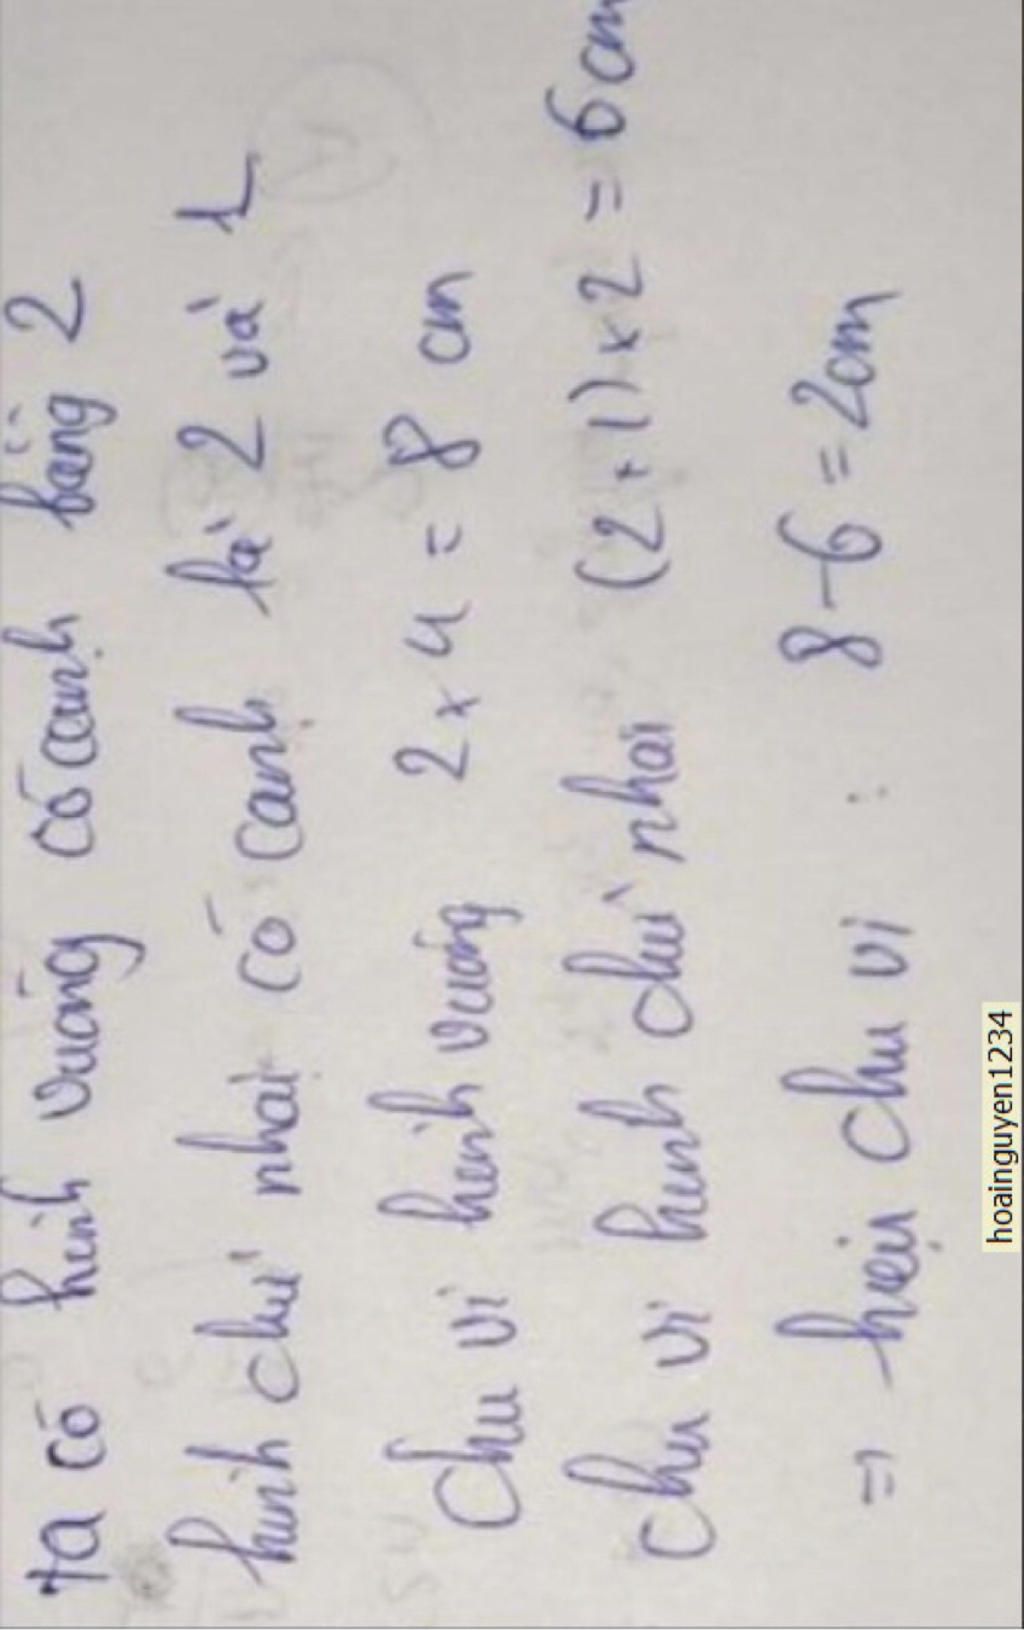 ta có hình vuông có cạnh bằng 2
hình chữ nhật có cạnh là 2 và 1
Chu vi hình vuông 2 x 4 = 8 cm
Chu vi hình chữ nhật (2+1) x 2 = 6 cm
=> hiệu chu vi : 8 - 6 = 2cm
hoainguyen1234